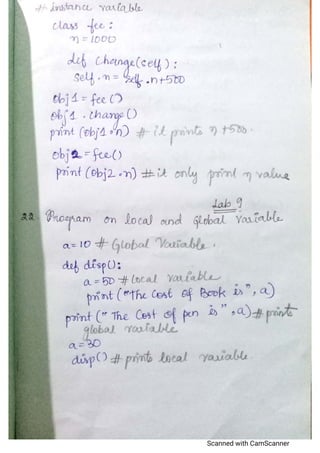 # instance variable
class fee:
n = 1000
def change(self):
self.n = self.n+500
obj1 = fee()
obj1.change()
print (obj1.n) # it prints n +500.
obj2 = fee()
print (obj2.n) # it only print n value
Lab 9
22. Program on local and Global Variable
a = 10 # Global Variable.
def disp():
a = 50 # local variable
print ("The Cost of Book is", a)
print (" The Cost of pen is ", a) # prints
global variable
a = 30
disp() # prints local variable.
Scanned with CamScanner